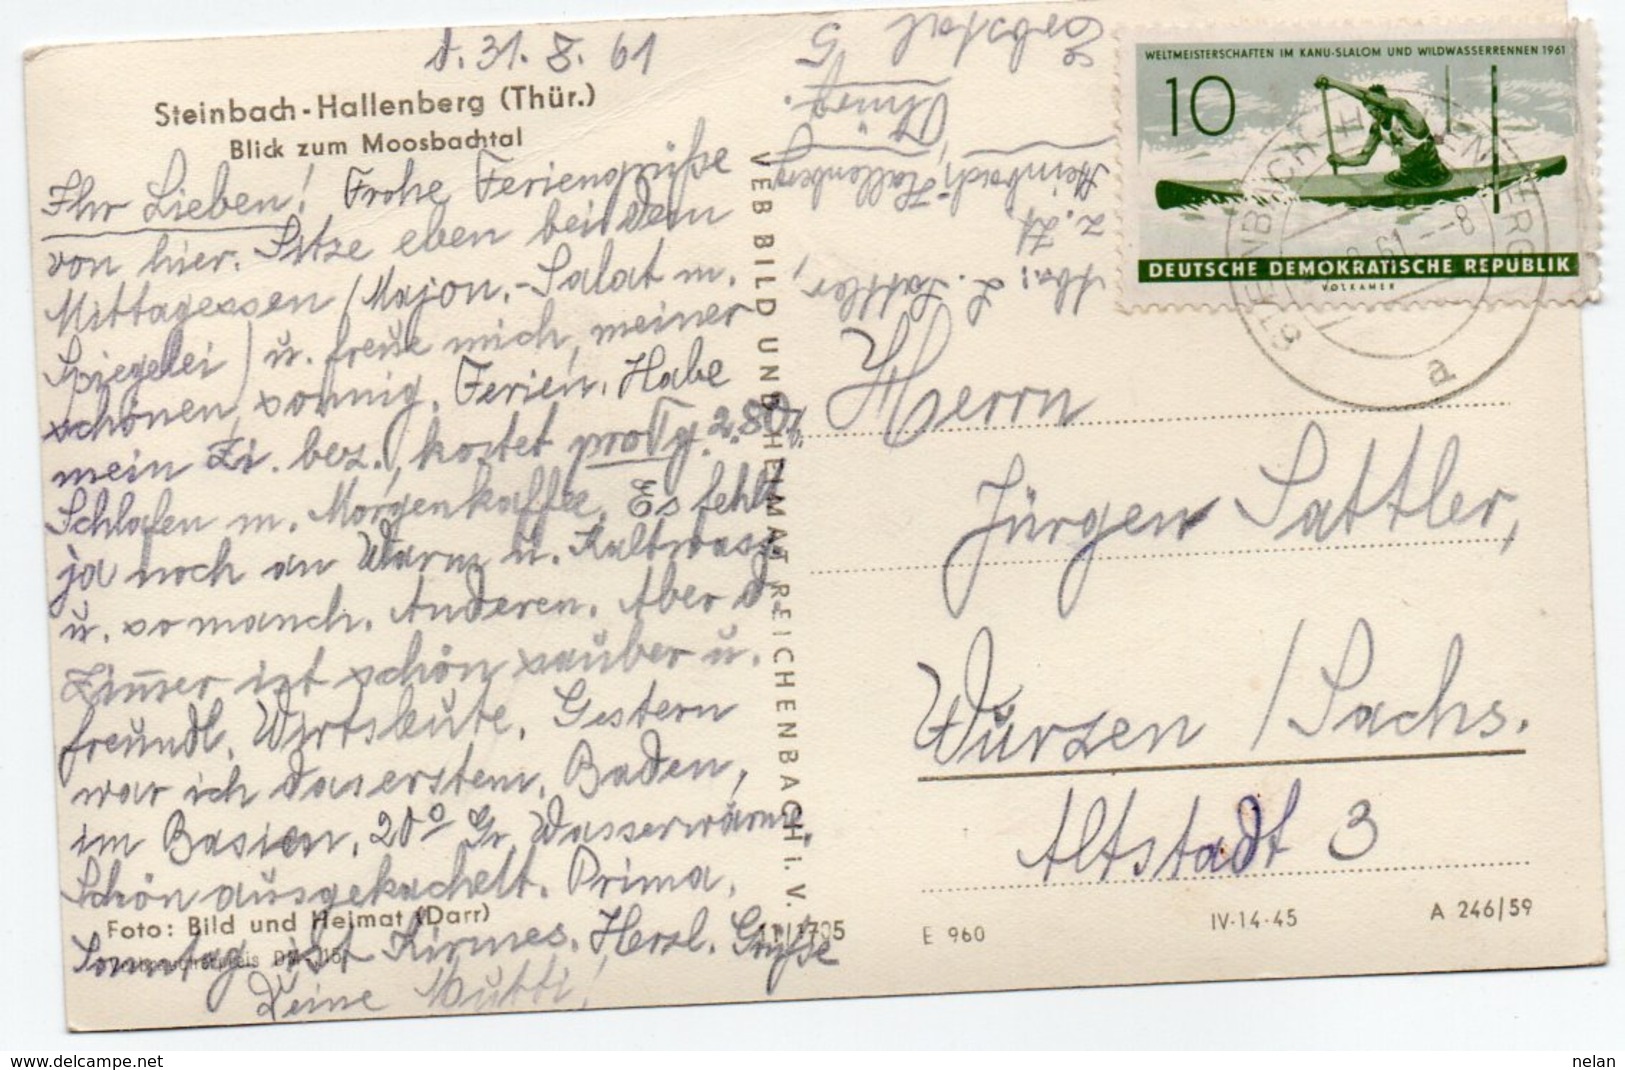 d. 31. 8. 61
Steinbach-Hallenberg (Thür.)
Blick zum Moosbachtal
Ihr Lieben! Frohe Feriengrüße
von hier. Sitze eben bei dem
Mittagessen (Majon.-Salat m.
Spiegelei) u. freue mich, meiner
schönen, sonnig. Ferien. Habe
mein Zi. bez., kostet pro Tg. 2.80
Schlafen m. Morgenkaffee. Es fehlt
ja noch an Warm u. Kaltwass.
u. so manch. Anderen. Aber d.
Zimmer ist schön sauber u.
freundl. Wirtsleute. Gestern
war ich das erstem. Baden,
im Bassien. 20° Gr. Wasserwärme.
Schön ausgekachelt. Prima.
Foto: Bild und Heimat (Darr)
Sonntag ist Kirmes. Herzl. Grüße
Deine Mutti!
VEB BILD UND HEIMAT REICHENBACH i. V.
Abs.: L. Sattler,
z. Zt.
Steinbach-Hallenberg
Thürg.
5
WELTMEISTERSCHAFTEN IM KANU-SLALOM UND WILDWASSERRENNEN 1961
10
DEUTSCHE DEMOKRATISCHE REPUBLIK
VOLKAMER
STEINBACH-HALLENBERG
61 --8
a
Herrn
Jürgen Sattler,
Wurzen / Sachs.
Altstadt 3
E 960
IV-14-45
A 246/59
delcampe.net
nelan